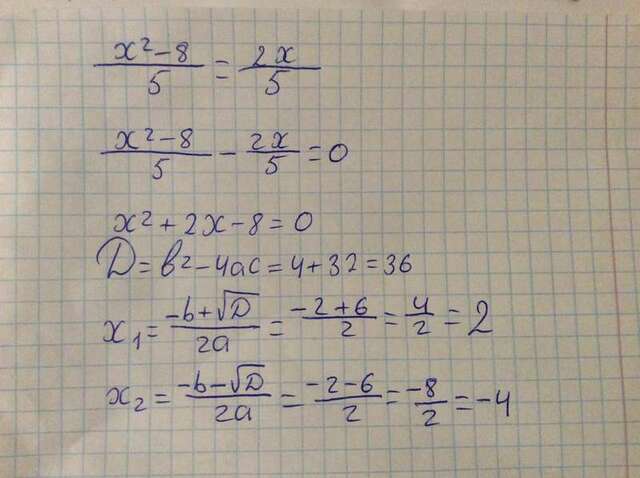 x²-8/5 = 2x/5
x²-8/5 - 2x/5 = 0
x²+2x-8=0
D=b²-4ac=4+32=36
x₁= -b+√D/2a = -2+6/2 = 4/2 = 2
x₂= -b-√D/2a = -2-6/2 = -8/2 = -4